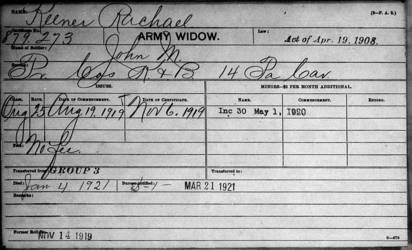 NAME: Keener Rachael (3-F. A. B.)
879,273 ARMY WIDOW. Law: Act of Apr. 19, 1908.
Name of Soldier: John M.
Pr. Cos A & B 14 Pa Cav
ISSUES. MINORS—$2 PER MONTH ADDITIONAL.
CLASS. RATE. DATE OF COMMENCEMENT. DATE OF CERTIFICATE. NAME. COMMENCEMENT. ENDING.
Orig 25 Aug 19, 1919 Nov 6, 1919 Inc 30 May 1, 1920
Fee: No Fee
Transferred from GROUP 3 Transferred to:
Died: Jan 4 1921 MAR 21 1921
Remarks:
NOV 14 1919